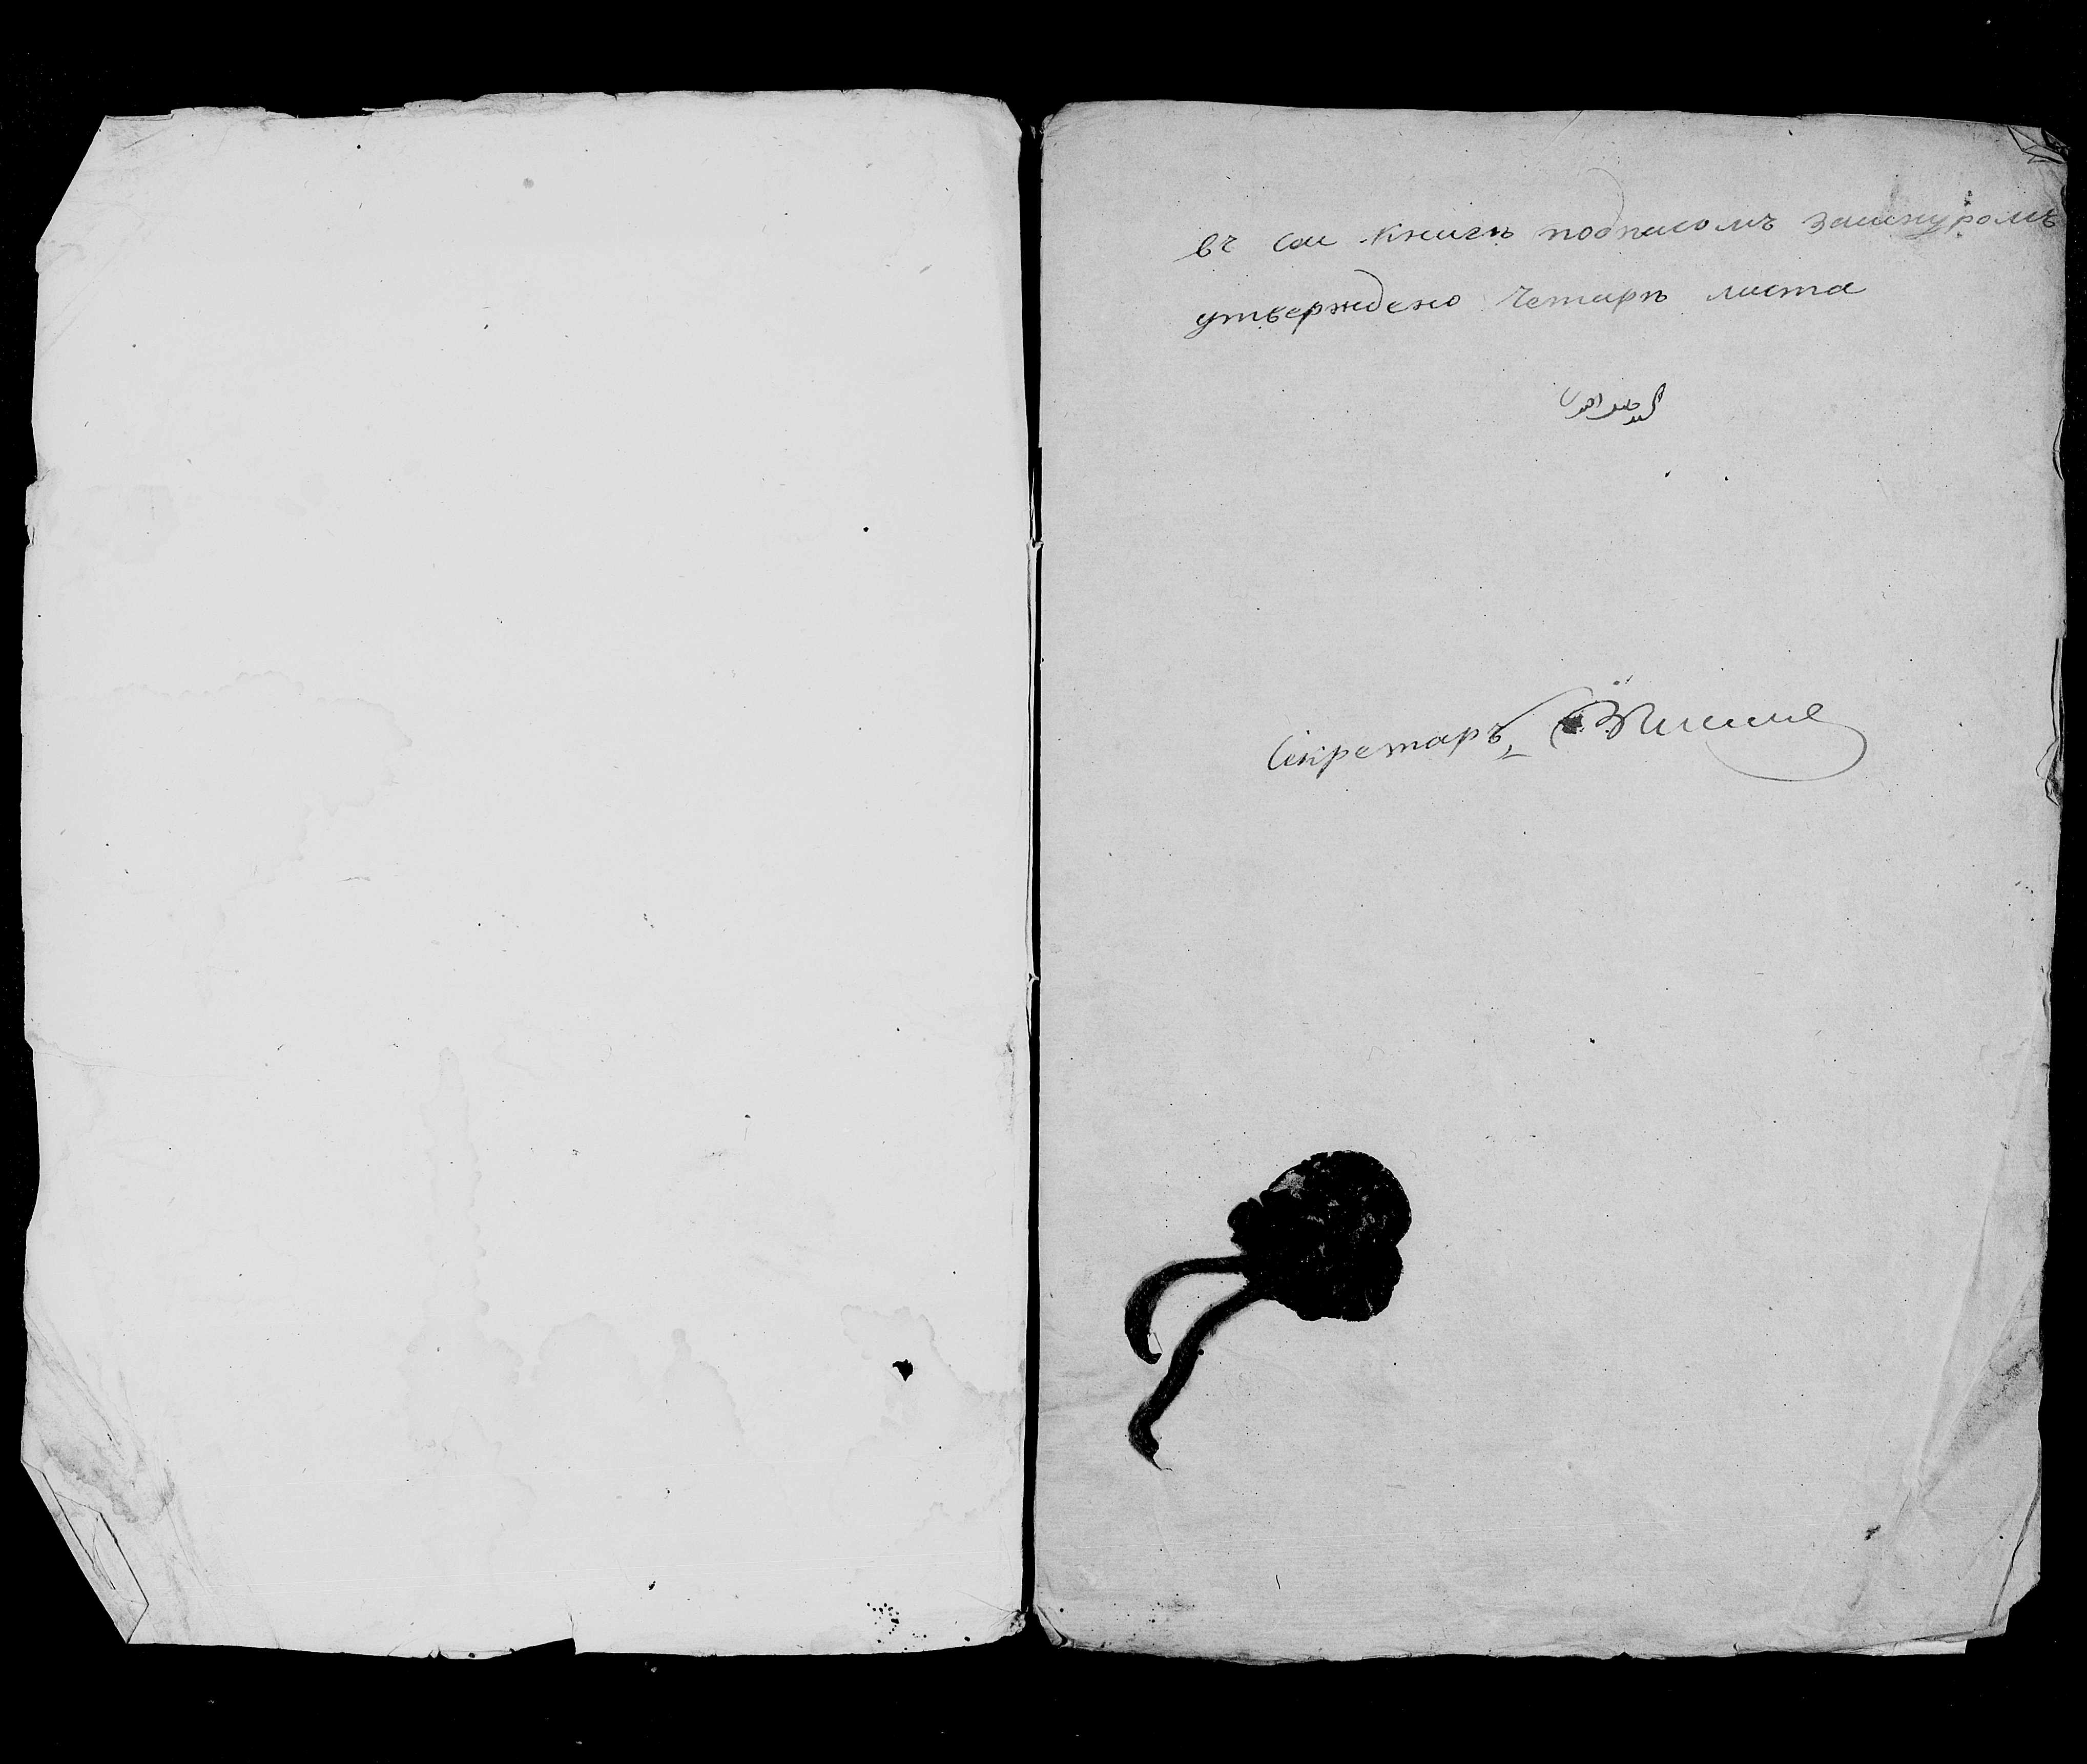 въ сы книгѣ подпасомъ зашнуромъ
утверждено четарѣ листа
Секретарь